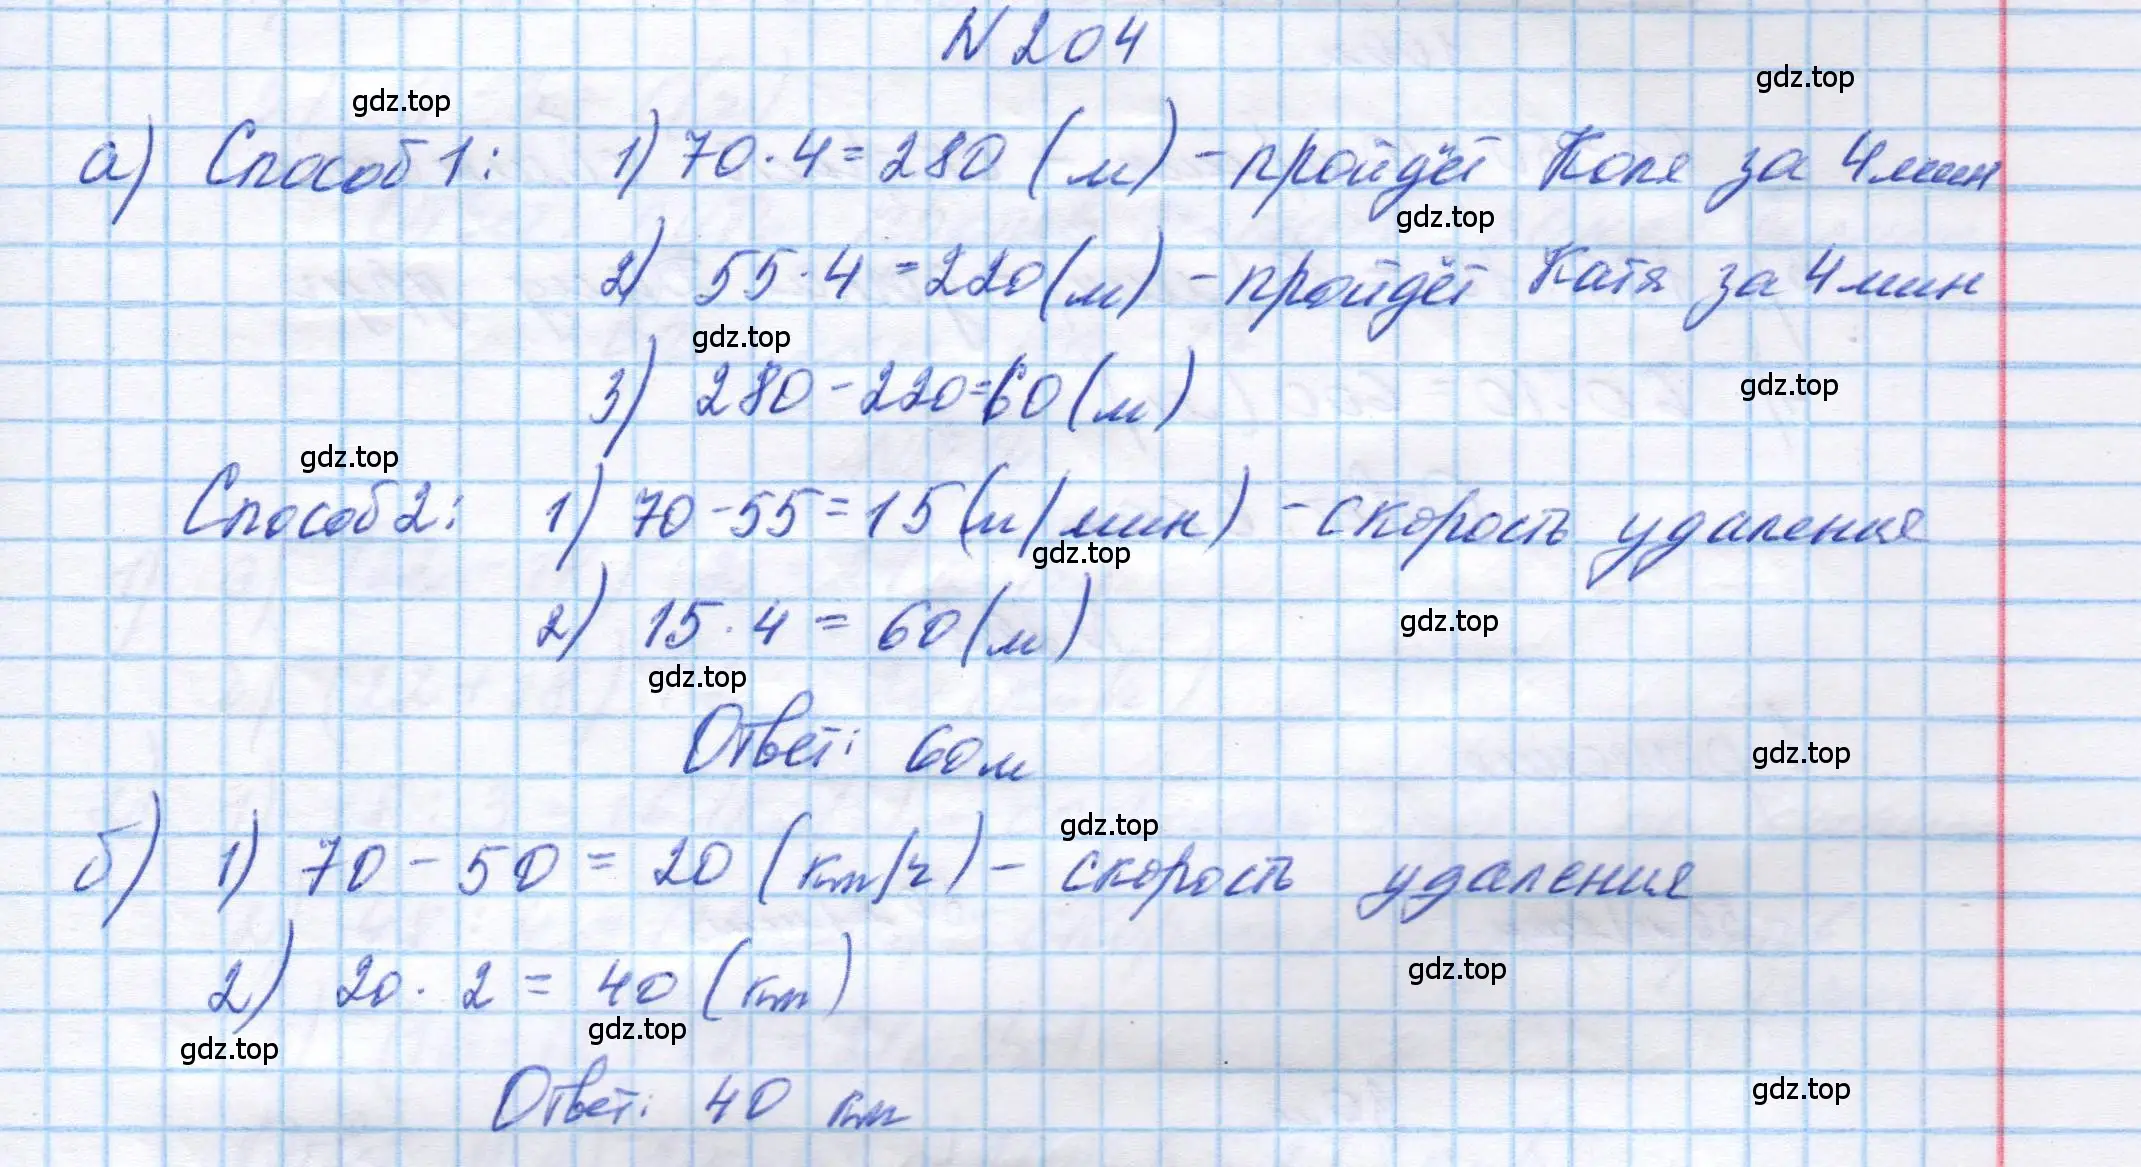 № 204
gdz.top
gdz.top
а) Способ 1: 1) 70 · 4 = 280 (м) - пройдёт Коля за 4 мин
gdz.top
2) 55 · 4 = 220 (м) - пройдёт Катя за 4 мин
gdz.top
3) 280 - 220 = 60 (м)
gdz.top
gdz.top
Способ 2: 1) 70 - 55 = 15 (м/мин) - скорость удаления
gdz.top
2) 15 · 4 = 60 (м)
gdz.top
gdz.top
Ответ: 60 м
gdz.top
gdz.top
б) 1) 70 - 50 = 20 (км/ч) - скорость удаления
2) 20 · 2 = 40 (км)
gdz.top
gdz.top
gdz.top
Ответ: 40 км
gdz.top